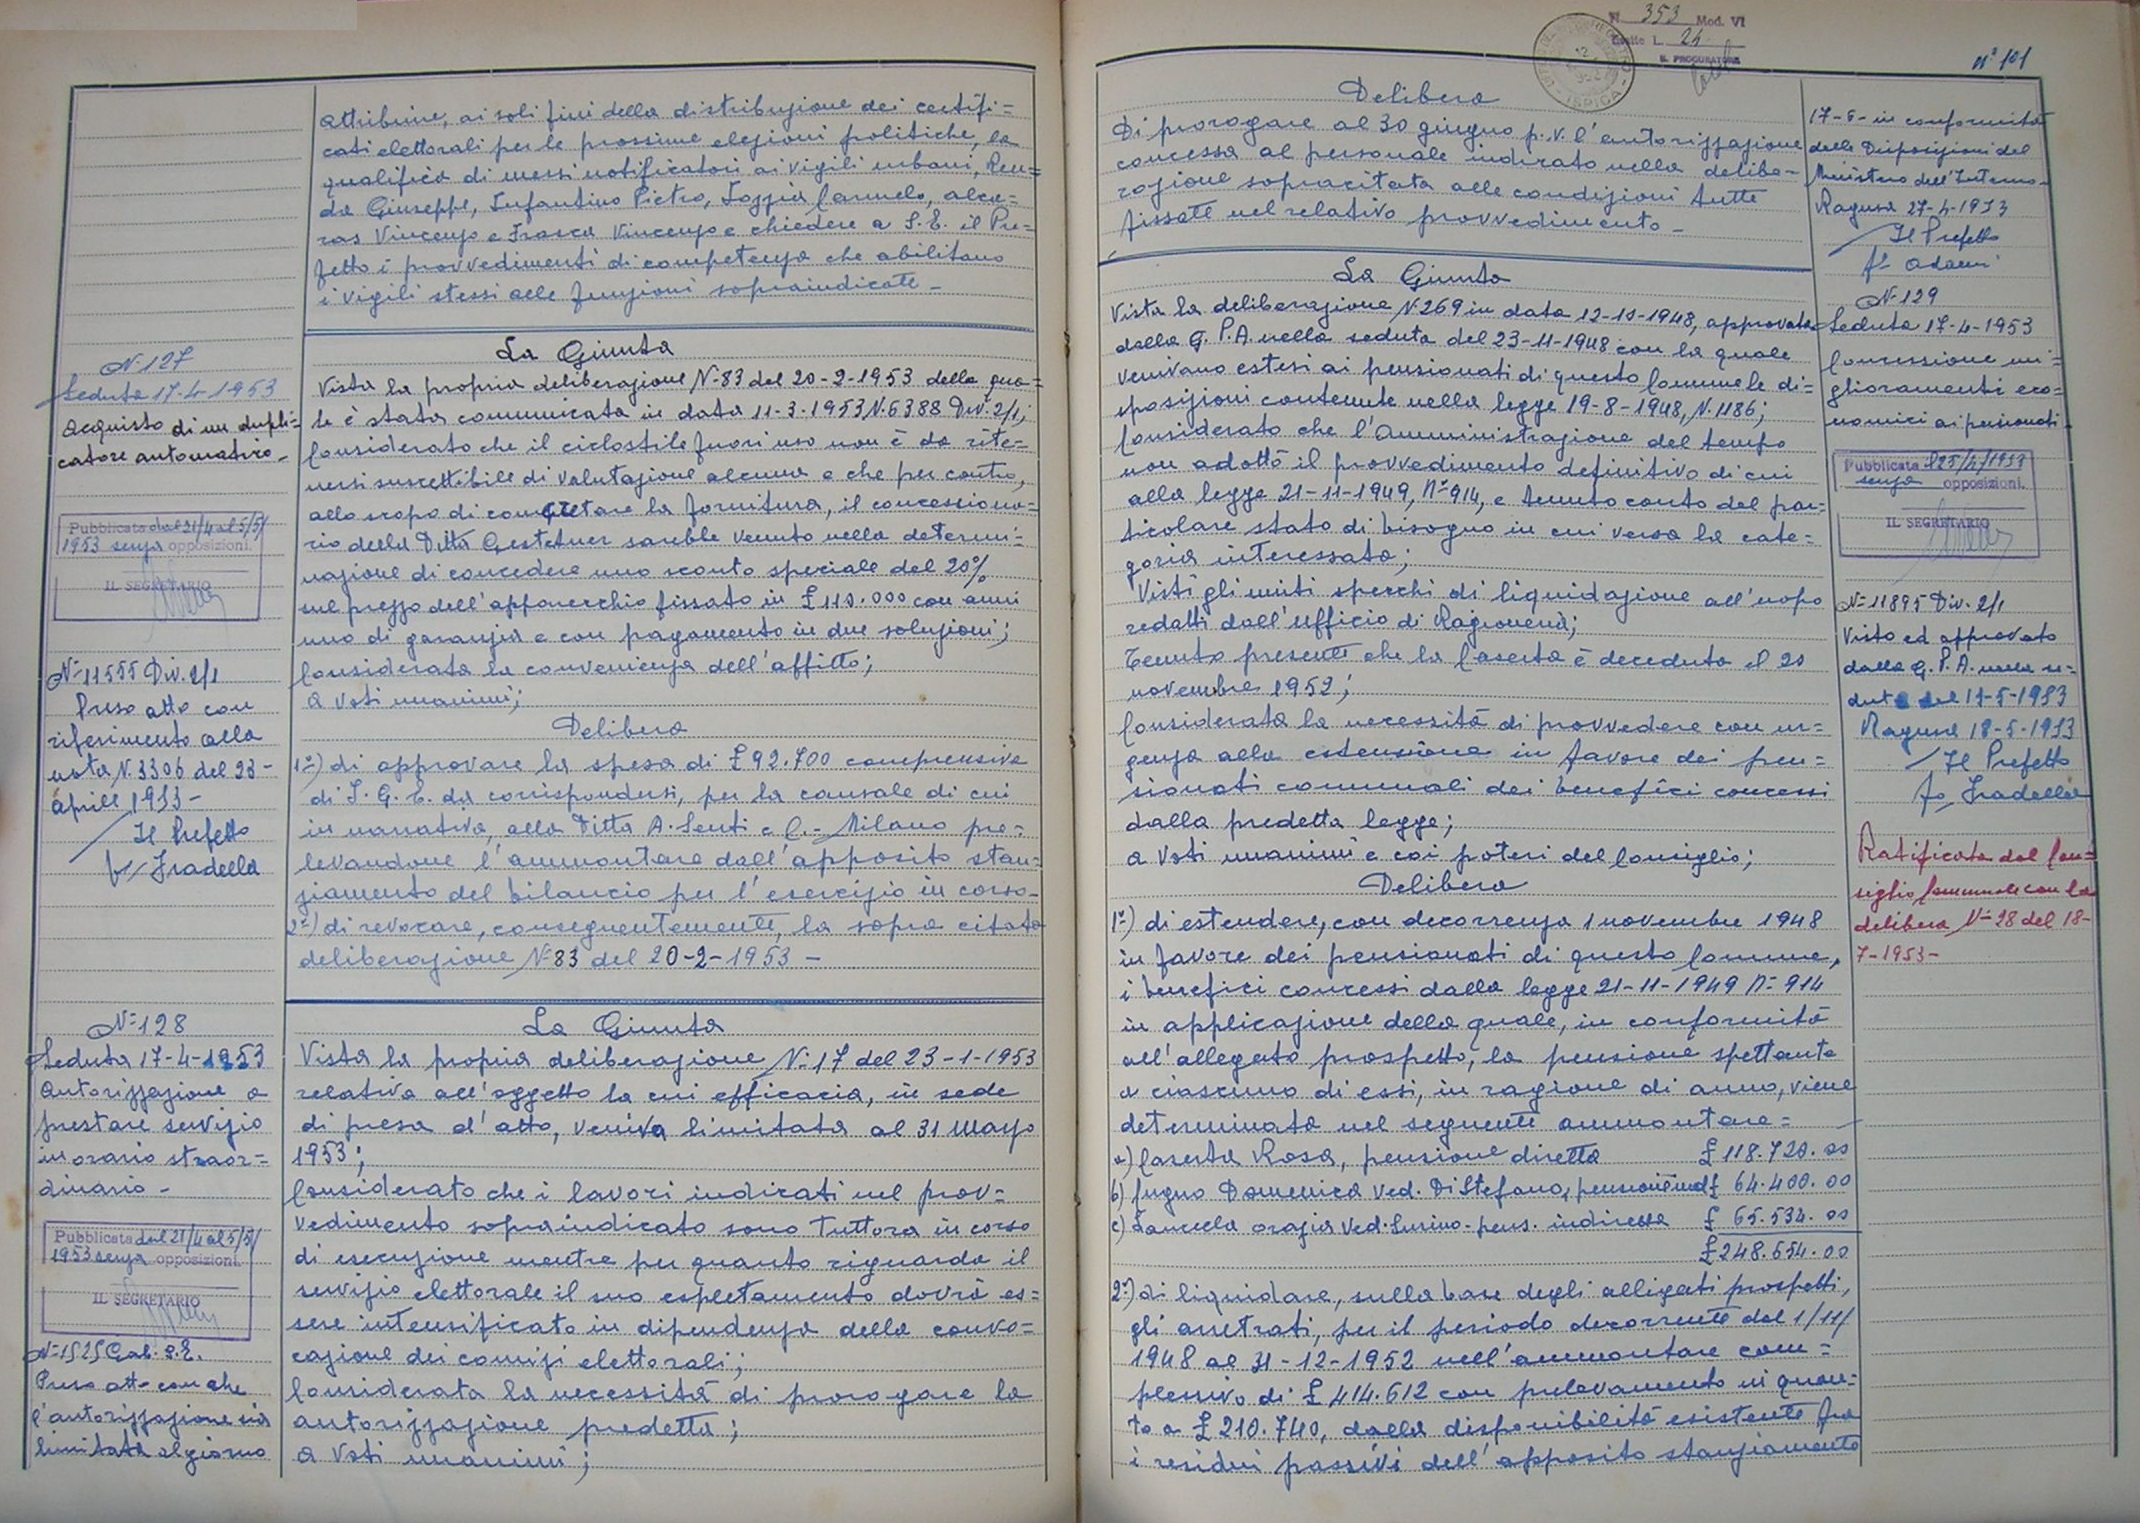 attribuire, ai soli fini della distribuzione dei certifi=
cati elettorali per le prossime elezioni politiche, la
qualifica di messi notificatori ai vigili urbani,
da Giuseppe, Infantino Pietro, Carmelo,
Vincenzo e Frasca Vincenzo e chiedere a S. E. il Pre=
fetto i provvedimenti di competenza che abilitano
i vigili stessi alle funzioni sopraindicate -
N. 127
Seduta 17-4-1953
Acquisto di un dupli=
catore automatico -
Pubblicata dal 21/4 al 5/5/
1953 senza opposizioni.
IL SEGRETARIO
N= 11555 Div. 2/1
Preso atto con
riferimento alla
nota N. 3306 del 23-
aprile 1953 -
Il Prefetto
f/ Fradella
La Giunta
Vista la propria deliberazione N-83 del 20-2-1953 della qua=
le è stata comunicata in data 11-3-1953, N. 6388 Div. 2/1;
Considerato che il ciclostile fuori uso non è da rite=
nersi suscettibile di valutazione alcuna e che per contro,
allo scopo di completare la fornitura, il concessiona=
rio della Ditta Gestetner sarebbe venuto nella determi=
nazione di concedere uno sconto speciale del 20%
sul prezzo dell'apparecchio fissato in £ 110.000 con anni
uno di garanzia e con pagamento in due soluzioni;
Considerata la convenienza dell'affitto;
A voti unanimi;
Delibera
1°) di approvare la spesa di £ 92.700 comprensiva
di I. G. E. da corrispondersi, per la causale di cui
in narrativa, alla Ditta A. Senti e C. - Milano pre=
levandone l'ammontare dall'apposito stan=
ziamento del bilancio per l'esercizio in corso -
2°) di revocare, conseguentemente, la sopra citata
deliberazione N-83 del 20-2-1953 -
N= 128
Seduta 17-4-1953
Autorizzazione a
prestare servizio
in orario straor=
dinario -
Pubblicata dal 21/4 al 5/5/
1953 senza opposizioni.
IL SEGRETARIO
N= 1525 Gab. S.E.
Preso atto con che
l'autorizzazione sia
limitata al giorno
La Giunta
Vista la propria deliberazione N. 17 del 23-1-1953
relativa all'oggetto la cui efficacia, in sede
di presa d'atto, veniva limitata al 31 Marzo
1953;
Considerato che i lavori indicati nel prov=
vedimento sopraindicato sono tuttora in corso
di esecuzione mentre per quanto riguarda il
servizio elettorale il suo espletamento dovrà es=
sere intensificato in dipendenza della convo=
cazione dei comizi elettorali;
Considerata la necessità di prorogare la
autorizzazione predetta;
A voti unanimi;
N 353 Mod. VI
Esatte L. 24
IL PROCURATORE
ISPICA
n° 101
Delibera
Di prorogare al 30 giugno p. v. l'autorizzazione
concessa al personale indicato nella delibe=
razione sopracitata alle condizioni tutte
fissate nel relativo provvedimento -
17-6- in conformità
delle Disposizioni del
Ministero dell'Interno -
Ragusa 27-4-1953
Il Prefetto
f° Adami
N- 129
Seduta 17-4-1953
Concessione mi=
glioramenti eco=
nomici ai pensionati
Pubblicata il 25/4/1953
senza opposizioni.
IL SEGRETARIO
N= 11895 Div. 2/1
Visto ed approvato
dalla G. P. A. nella se=
duta del 17-5-1953
Ragusa 18-5-1953
Il Prefetto
f° Fradella
Ratificata dal Con=
siglio Comunale con la
delibera N= 28 del 18-
7-1953 -
La Giunta
Vista la deliberazione N. 269 in data 12-10-1948, approvata
dalla G. P. A. nella seduta del 23-11-1948 con la quale
venivano estesi ai pensionati di questo Comune le di=
sposizioni contenute nella legge 19-8-1948, N. 1186;
Considerato che l'Amministrazione del tempo
non adottò il provvedimento definitivo di cui
alla legge 21-11-1949, N° 914, e tenuto conto del par=
ticolare stato di bisogno in cui versa la cate=
goria interessata;
Visti gli uniti specchi di liquidazione all'uopo
redatti dall'ufficio di Ragioneria;
Tenuto presente che la Caserta è deceduta il 20
novembre 1952;
Considerata la necessità di provvedere con ur=
genza alla estensione in favore dei pen=
sionati comunali dei benefici concessi
dalla predetta legge;
A voti unanimi e coi poteri del Consiglio;
Delibera
1°) di estendere, con decorrenza 1 novembre 1948
in favore dei pensionati di questo Comune,
i benefici concessi dalla legge 21-11-1949 N= 914
in applicazione della quale, in conformità
all'allegato prospetto, la pensione spettante
a ciascuno di essi, in ragione di anno, viene
determinata nel seguente ammontare=
a) Caserta Rosa, pensione diretta £ 118.720.00
b) Fugno Domenica ved. Di Stefano, pensione ind £ 64.400.00
c) Lancela Orazia ved. Serino - pens. indiretta £ 65.534.00
£ 248.654.00
2°) di liquidare, sulla base degli alligati prospetti,
gli arretrati, per il periodo decorrente dal 1/11/
1948 al 31-12-1952 nell'ammontare com=
plessivo di £ 414.612 con prelevamento in quan=
to a £ 210.740, dalla disponibilità esistente fra
i residui passivi dell'apposito stanziamento